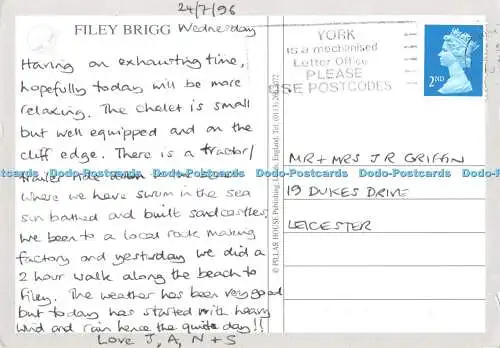 24/7/96
FILEY BRIGG Wednesday
Having an exhausting time,
hopefully today will be more
relaxing. The chalet is small
but well equipped and on the
cliff edge. There is a tractor/
trailer ride down to the beach
where we have swum in the sea
sun bathed and built sandcastles,
we been to a local rock making
factory and yesturday we did a
2 hour walk along the beach to
Filey. The weather has been very good
but today has started with heavy
wind and rain hence the quite day!!
Love J, A, N + S
© PILLAR HOUSE Publishing, Leeds, England. Tel: (0113)
YORK
is a mechanised
Letter Office
PLEASE
USE POSTCODES
2ND
MR + MRS J R GRIFFIN
19 DUKES DRIVE
LEICESTER
Dodo-Postcards Dodo-Postcards Dodo-Postcards Dodo-Postcards